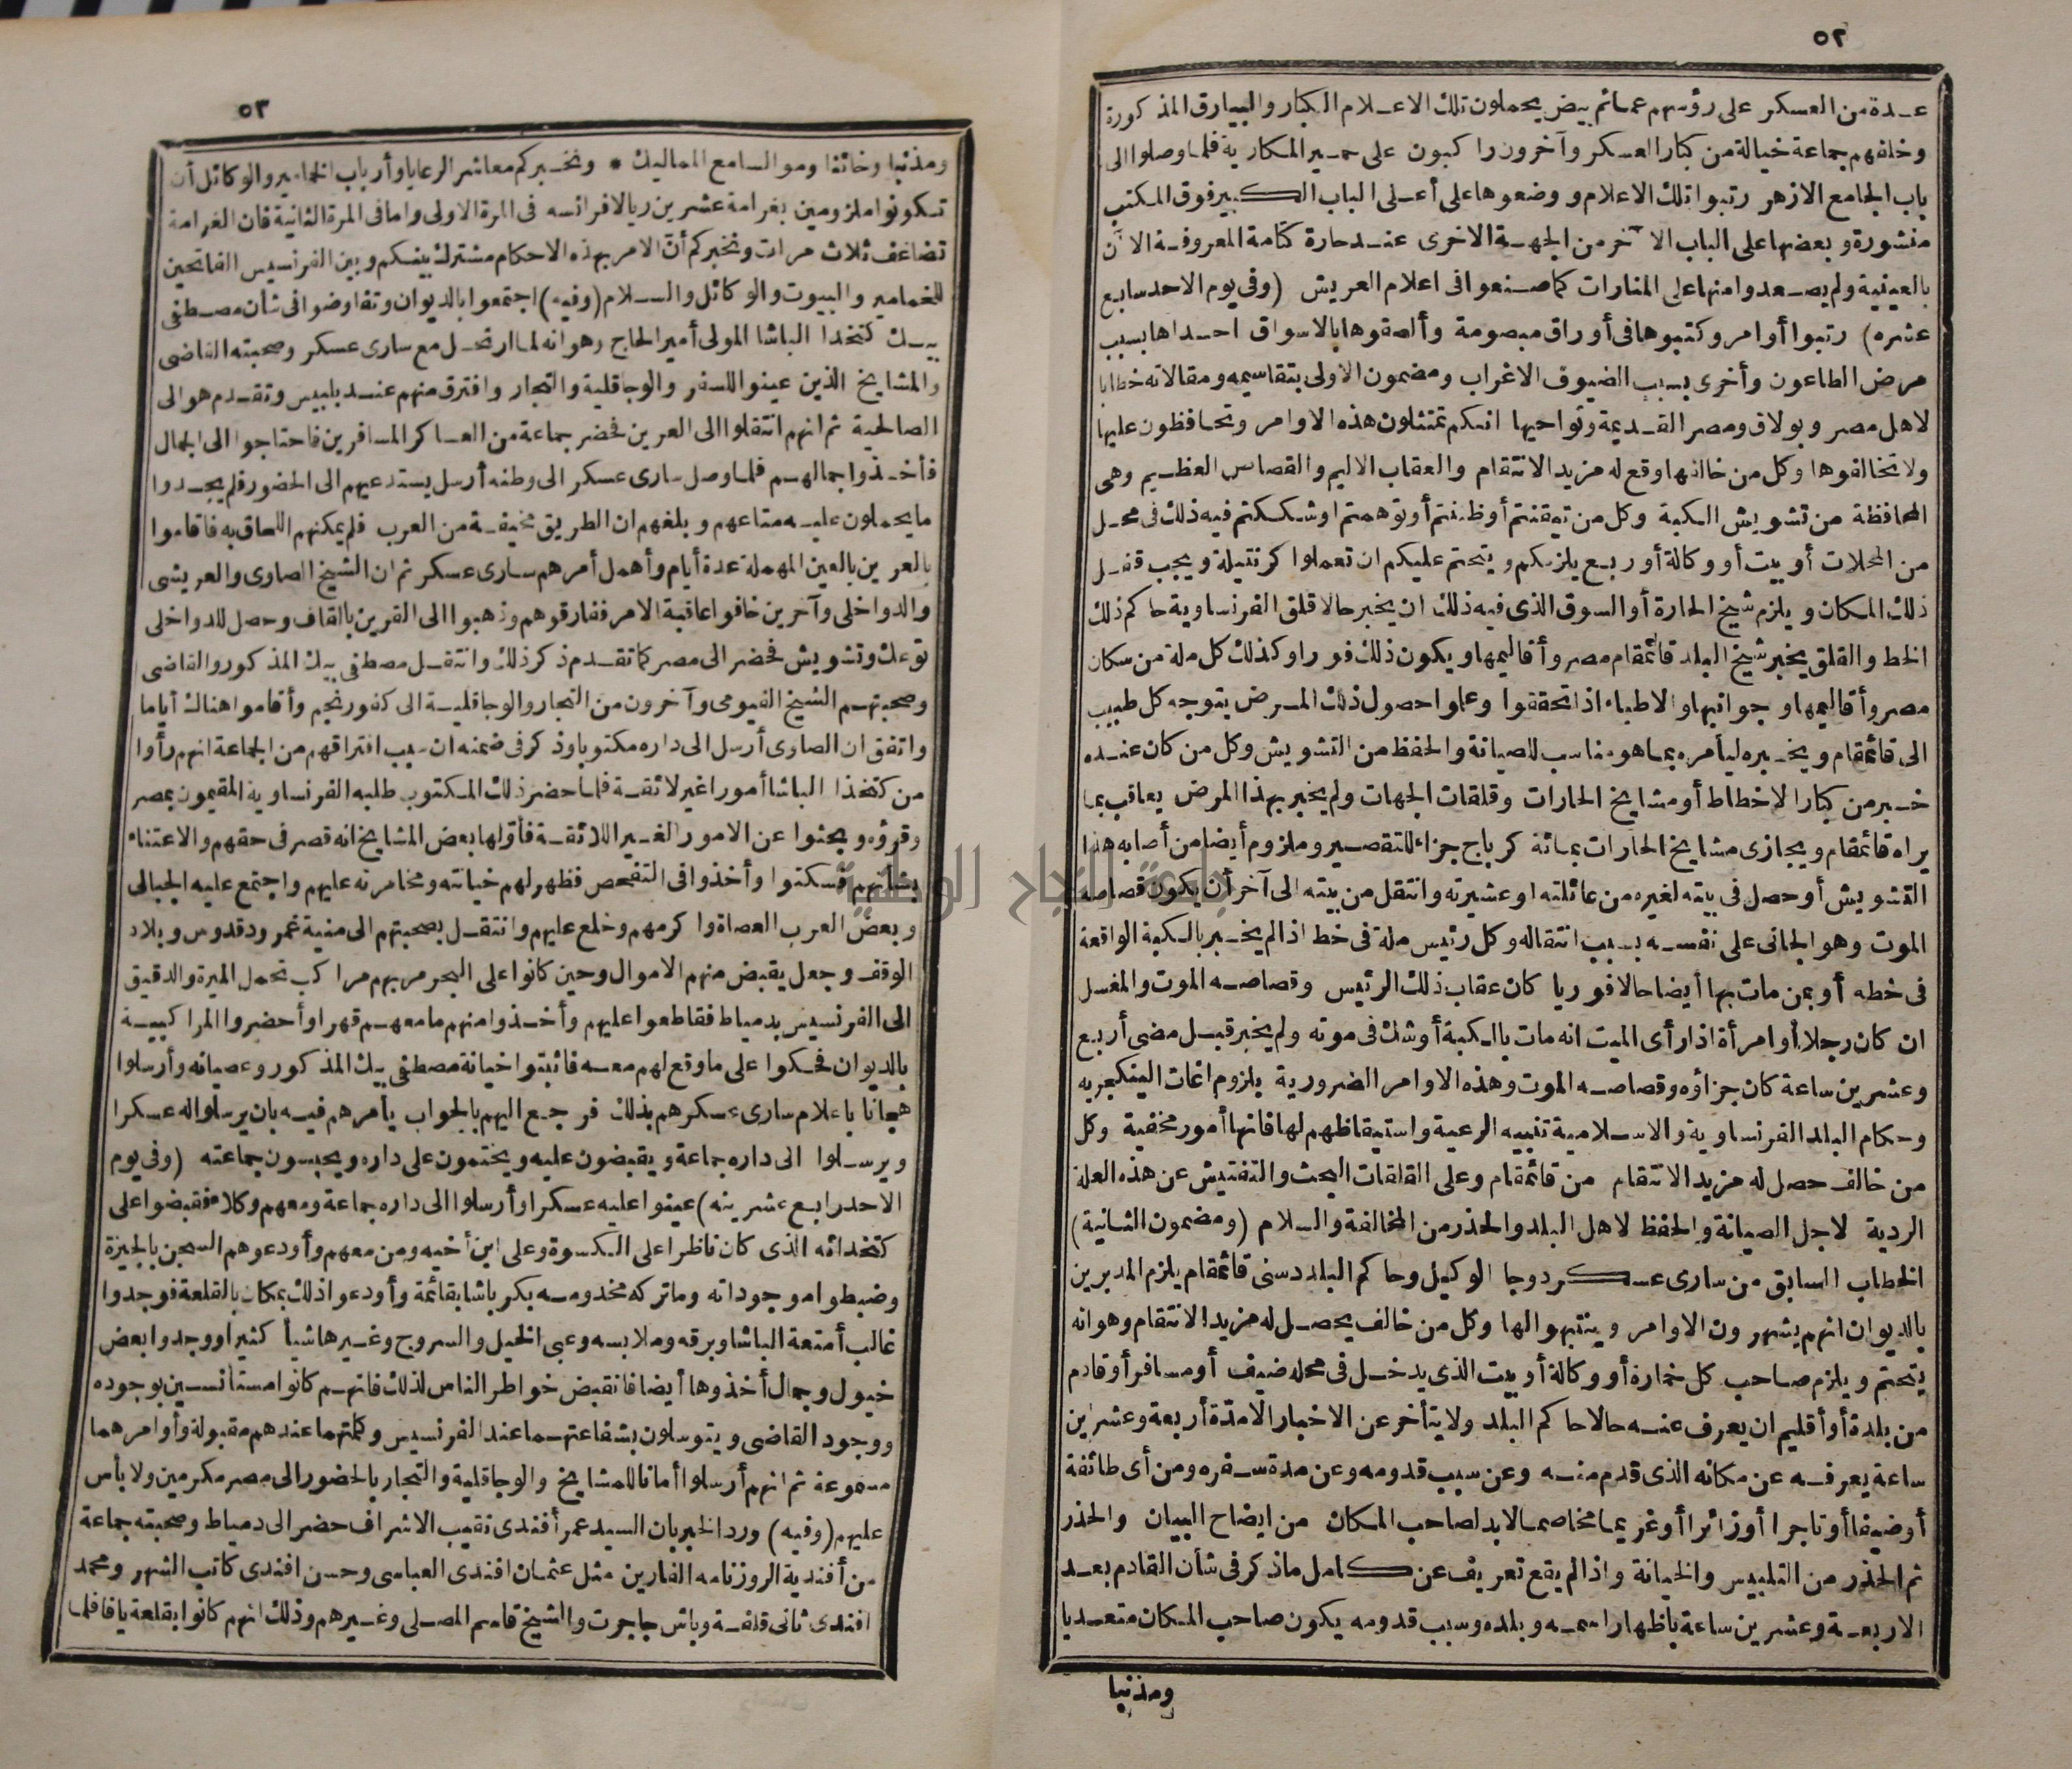 ٥٢
عدة من العسكر على رؤسهم عمائم بيض يحملون تلك الاعلام الكبار والبيارق المذكورة
وخلفهم جماعة خيالة من كبار العسكر وآخرون راكبون على حمير المكارية فلما وصلوا الى
باب الجامع الازهر رتبوا تلك الاعلام ووضعوها على أعلى الباب الكبير فوق المكتب
منشورة وبعضها على الباب الآخر من الجهة الاخرى عند حارة كتامة المعروفة الآن
بالعينية ولم يصعدوا منها على المنارات كما صنعوا فى اعلام العريش (وفى يوم الاحد سابع
عشره) رتبوا أوامر وكتبوها فى أوراق مبصومة وألصقوها بالاسواق احداها بسبب
مرض الطاعون وأخرى بسبب الضيوف الاغراب ومضمون الاولى بتقاسيمه ومقالاته خطابا
لاهل مصر وبولاق ومصر القديمة ونواحيها انكم تمتثلون هذه الاوامر وتحافظون عليها
ولا تخالفوها وكل من خالفها وقع له مزيد الانتقام والعقاب الاليم والقصاص العظيم وهى
المحافظة من تشويش الكبة وكل من تيقنتم أو ظننتم أو توهمتم او شككتم فيه ذلك فى محل
من المحلات أو بيت أو وكالة أو ربع يلزمكم ويتحتم عليكم ان تعملوا كرنتيلة ويجب قفل
ذلك المكان ويلزم شيخ الحارة أو السوق الذى فيه ذلك ان يخبر حالا قلق الفرنساوية حاكم ذلك
الخط والقلق يخبر شيخ البلد قائمقام مصر وأقاليمها ويكون ذلك فورا وكذلك كل ملة من سكان
مصر وأقاليمها وجوانبها والاطباء اذا تحققوا وعلموا حصول ذلك المرض يتوجه كل طبيب
الى قائمقام ويخبره ليأمره بما هو مناسب للصيانة والحفظ من التشويش وكل من كان عنده
خبر من كبار الاخطاط أو مشايخ الحارات وقلقات الجهات ولم يخبر بهذا المرض يعاقب بما
يراه قائمقام ويجازى مشايخ الحارات بمائة كرباج جزاء للتقصير وملزوم أيضا من أصابه هذا
التشويش أو حصل فى بيته لغيره من عائلته او عشيرته وانتقل من بيته الى آخر أن يكون قصاصه
الموت وهو الجانى على نفسه بسبب انتقاله وكل رئيس ملة فى خط اذا لم يخبر بالكبة الواقعة
فى خطه أو بمن مات بها أيضا حالا فوريا كان عقاب ذلك الرئيس وقصاصه الموت والمغسل
ان كان رجلا أو امرأة اذا رأى الميت انه مات بالكبة أو شك فى موته ولم يخبر قبل مضى أربع
وعشرين ساعة كان جزاؤه وقصاصه الموت وهذه الاوامر الضرورية يلزوم اغات الينكجرية
وحكام البلد الفرنساوية والاسلامية تنبيه الرعية واستيقاظهم لها فانها أمور مخفية وكل
من خالف حصل له مزيد الانتقام من قائمقام وعلى القلقات البحث والتفتيش عن هذه العلة
الردية لاجل الصيانة والحفظ لاهل البلد والحذر من المخالفة والسلام (ومضمون الثانية)
الخطاب السابق من سارى عسكر دوجا الوكيل وحاكم البلد دسنى قائمقام يلزم المدبرين
بالديوان انهم يشهرون الاوامر وينتبهوا لها وكل من خالف يحصل له مزيد الانتقام وهو انه
يتحتم ويلزم صاحب كل خمارة أو وكالة أو بيت الذى يدخل فى محله ضيف أو مسافر أو قادم
من بلدة أو أقليم ان يعرف عنه حالا حاكم البلد ولا يتأخر عن الاخبار الا مدة أربعة وعشرين
ساعة يعرفه عن مكانه الذى قدم منه وعن سبب قدومه وعن مدة سفره ومن أى طائفة
أو ضيفا أو تاجرا أو زائرا أو غريما مخاصما لابد لصاحب المكان من ايضاح البيان والحذر
ثم الحذر من التلبيس والخيانة واذا لم يقع تعريف عن كامل ماذكر فى شأن القادم بعد
الاربعة وعشرين ساعة باظهار اسمه وبلده وسبب قدومه يكون صاحب المكان متعديا
ومذنبا
٥٣
ومذنبا وخائنا وموالسا مع المماليك * ونخبركم معاشر الرعايا وأرباب الخمامير والوكائل أن
تكونوا ملزومين بغرامة عشرين ريالا فرانسه فى المرة الاولى واما فى المرة الثانية فان الغرامة
تضاعف ثلاث مرات ونخبركم أن الامر بهذه الاحكام مشترك بينكم وبين الفرنسيس الفاتحين
للخمامير والبيوت والوكائل والسلام (وفيه) اجتمعوا بالديوان وتفاوضوا فى شأن مصطفى
بيك كتخدا الباشا المولى أمير الحاج وهو انه لما ارتحل مع سارى عسكر وصحبته القاضى
والمشايخ الذين عينوا للسفر والوجاقلية والتجار وافترق منهم عند بلبيس وتقدم هو الى
الصالحية ثم انهم انتقلوا الى العرين فحضر جماعة من العساكر المسافرين فاحتاجوا الى الجمال
فأخذوا جمالهم فلما وصل سارى عسكر الى وطنه أرسل يستدعيهم الى الحضور فلم يجدوا
ما يحملون عليه متاعهم وبلغهم ان الطريق مخيفة من العرب فلم يمكنهم اللحاق به فاقاموا
بالعرين بالعين المهملة عدة أيام وأهمل أمرهم سارى عسكر ثم ان الشيخ الصاوى والعريشى
والدواخلى وآخرين خافوا عاقبة الامر ففارقوهم وذهبوا الى القرين بالقاف وحصل للدواخلى
توعك وتشويش فحضر الى مصر كما تقدم ذكر ذلك وانتقل مصطفى بيك المذكور والقاضى
وصحبتهم الشيخ الفيومى وآخرون من التجار والوجاقلية الى كفور نجيم وأقاموا هناك أياما
واتفق ان الصاوى أرسل الى داره مكتوبا وذكر فى ضمنه ان سبب افتراقهم من الجماعة انهم رأوا
من كتخدا الباشا أمورا غير لائقة فلما حضر ذلك المكتوب طلبه الفرنساوية المقيمون بمصر
وقرؤه وبحثوا عن الامور الغير اللائقة فأولها بعض المشايخ انه قصر فى حقهم والاعتناء
بشأنهم فسكتوا وأخذوا فى التفحص فظهر لهم خيانته ومخامرته عليهم واجتمع عليه الجبالى
وبعض العرب العصاة وا كرمهم وخلع عليهم وانتقل بصحبتهم الى منية غمر ودقدوس وبلاد
الوقف وجعل يقبض منهم الاموال وحين كانوا على البحر مر بهم مراكب تحمل الميرة والدقيق
الى الفرنسيس بدمياط فقاطعوا عليهم وأخذوا منهم ما معهم قهرا وأحضروا المراكبية
بالديوان فحكوا على ما وقع لهم معه فاثبتوا خيانة مصطفى بيك المذكور وعصيانه وأرسلوا
هجانا باعلام سارى عسكرهم بذلك فرجع اليهم بالجواب يأمرهم فيه بان يرسلوا له عسكرا
ويرسلوا الى داره جماعة ويقبضون عليه ويختمون على داره ويحبسون جماعته (وفى يوم
الاحد رابع عشرينه) عينوا عليه عسكرا وأرسلوا الى داره جماعة ومعهم وكلاء فقبضوا على
كتخدائه الذى كان ناظرا على الكسوة وعلى ابن أخيه ومن معهم وأودعوهم السجن بالجيزة
وضبطوا موجوداته وما تركه مخدومه بكر باشا بقائمة وأودعوا ذلك بمكان بالقلعة فوجدوا
غالب أمتعة الباشا وبرقه وملابسه وعبى الخيل والسروج وغيرها شيأ كثيرا ووجدوا بعض
خيول وجمال أخذوها أيضا فانقبض خواطر الناس لذلك فانهم كانوا مستأنسين بوجوده
ووجود القاضى ويتوسلون بشفاعتهما عند الفرنسيس وكلمتهما عندهم مقبولة وأوامرهما
مسموعة ثم انهم أرسلوا أمانا للمشايخ والوجاقلية والتجار بالحضور الى مصر مكرمين ولا بأس
عليهم (وفيه) ورد الخبر بان السيد عمر أفندى نقيب الاشراف حضر الى دمياط وصحبته جماعة
من أفندية الروزنامه الفارين مثل عثمان افندى العباسى وحسن افندى كاتب الشهر ومحمد
افندى ثانى قلفة وباش جاجرت والشيخ قاسم المصلى وغيرهم وذلك انهم كانوا بقلعة يافا فلما
جامعة النجاح الوطنية